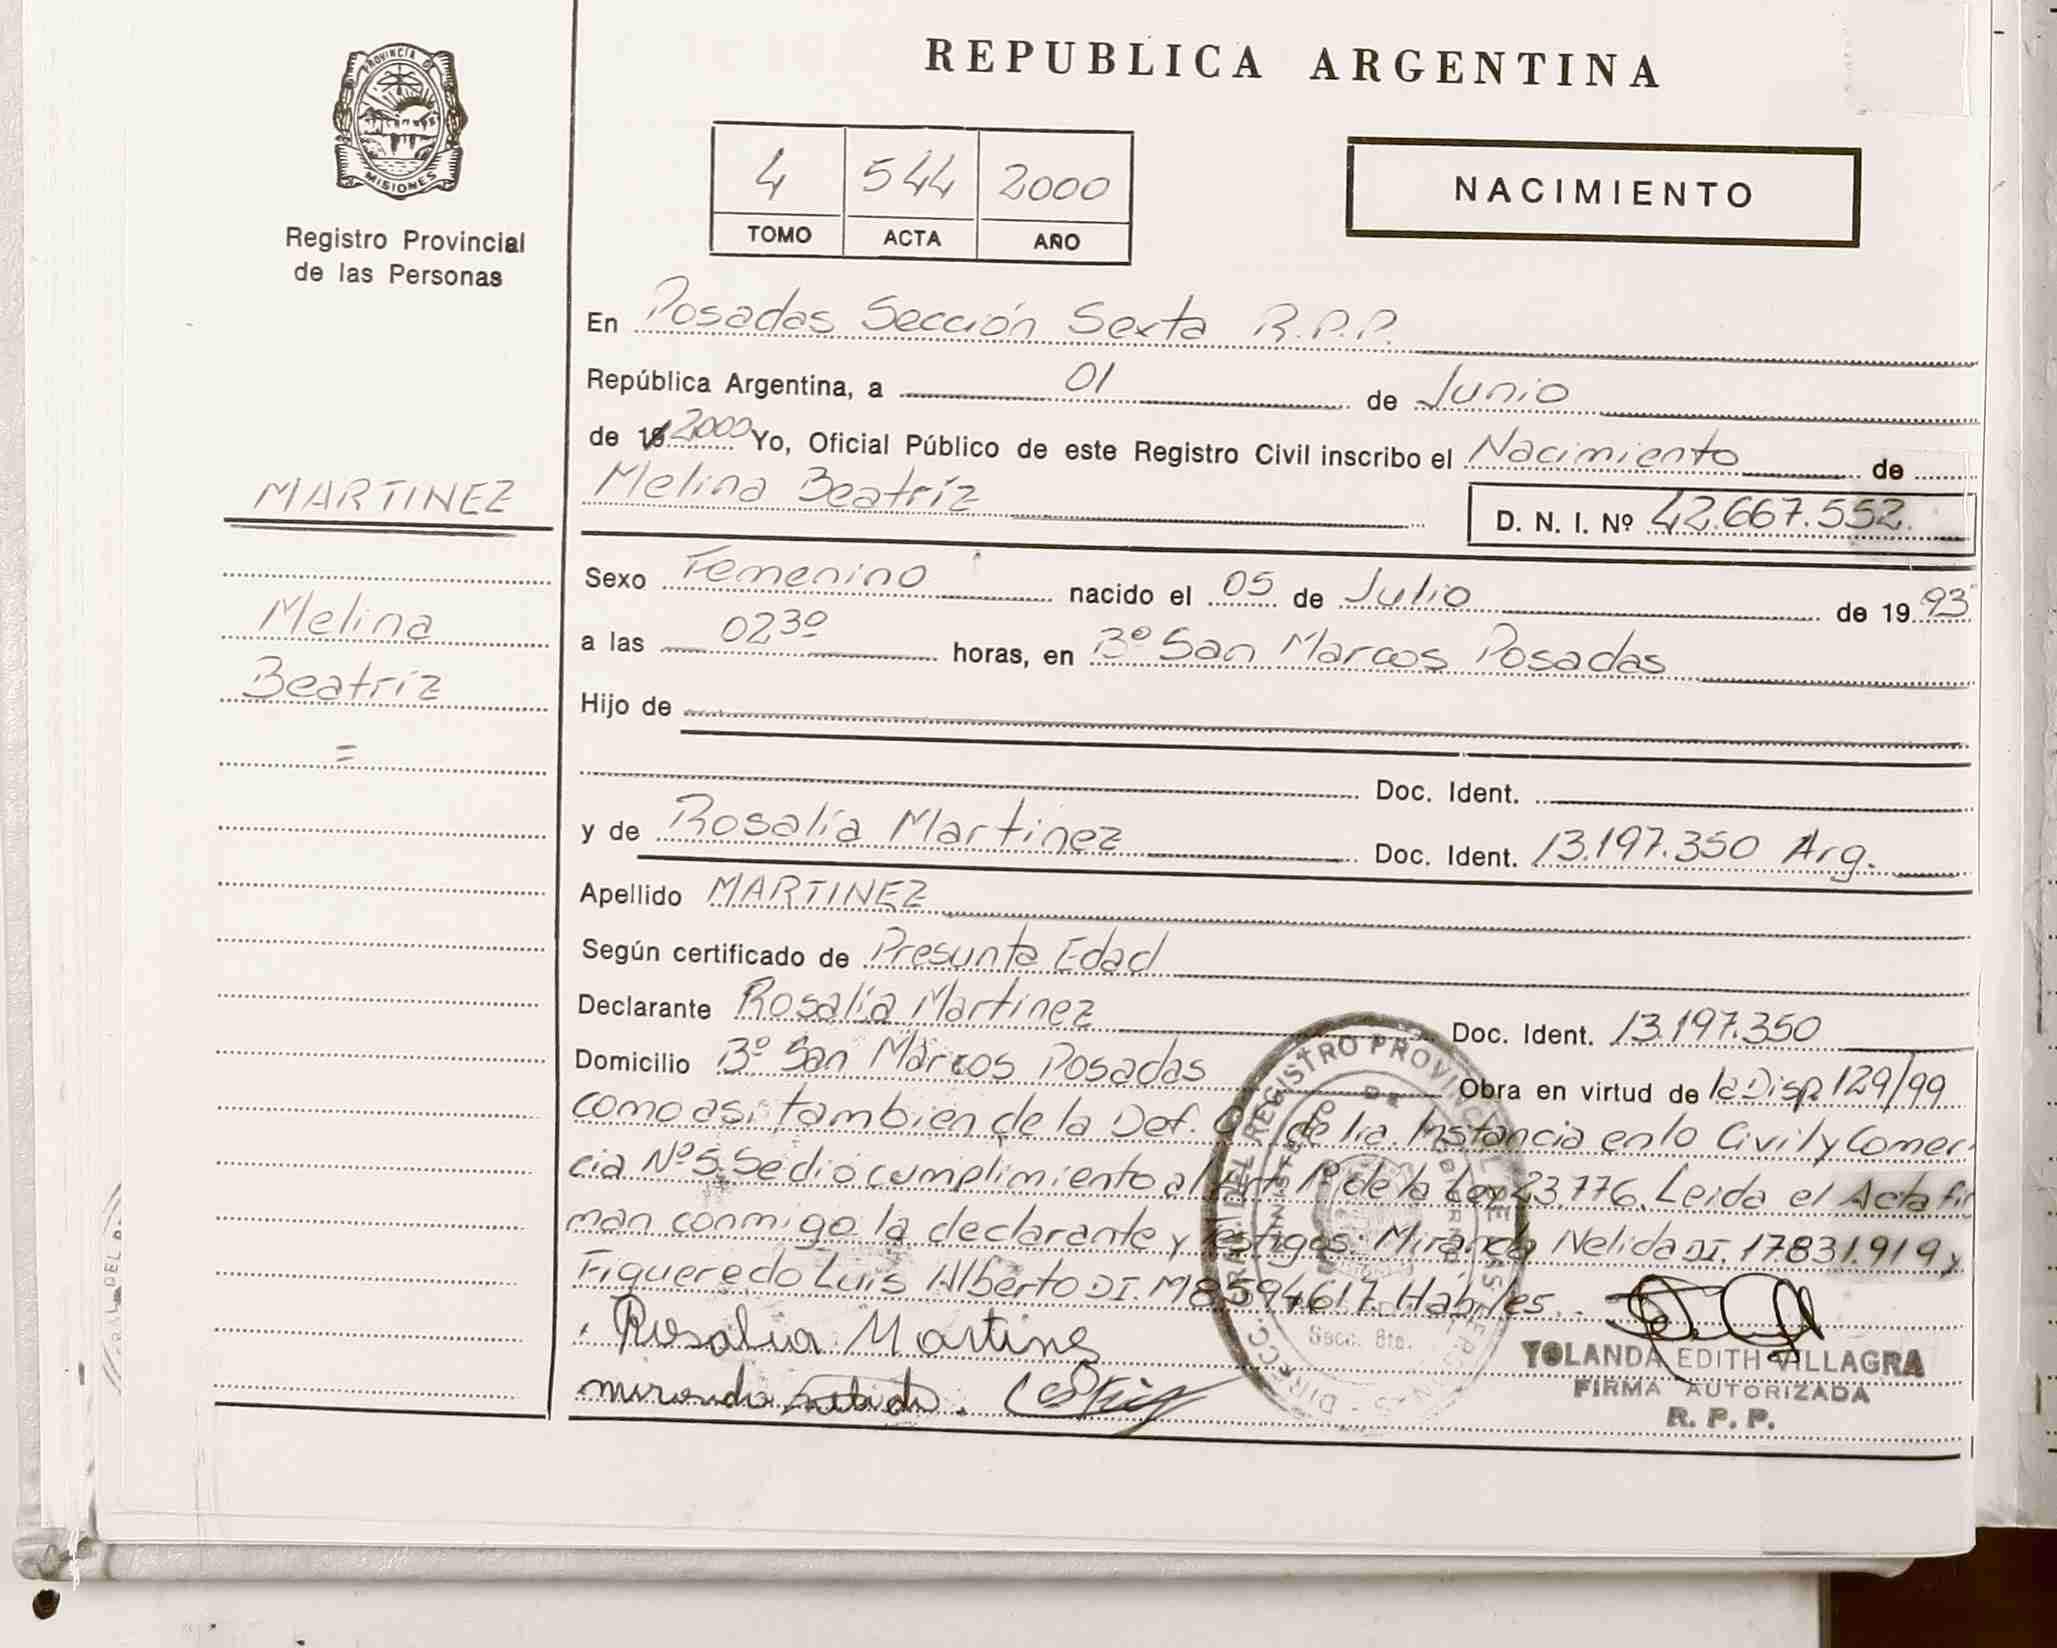 PROVINCIA D
MISIONES
Registro Provincial
de las Personas
REPUBLICA ARGENTINA
4 544 2000
TOMO ACTA AÑO
NACIMIENTO
En Posadas Sección Sexta R.P.P.
República Argentina, a 01 de Junio
de 19 2000 Yo, Oficial Público de este Registro Civil inscribo el Nacimiento de
MARTINEZ
Melina Beatríz D. N. I. Nº 42.667.552
Sexo Femenino nacido el 05 de Julio de 19 93
Melina
a las 02³⁰ horas, en Bº San Marcos Posadas
Beatríz
Hijo de
=
Doc. Ident.
y de Rosalía Martinez Doc. Ident. 13.197.350 Arg.
Apellido MARTINEZ
Según certificado de Presunta Edad
Declarante Rosalía Martinez Doc. Ident. 13.197.350
Domicilio Bº San Marcos Posadas Obra en virtud de la Disp 129/99
como asi tambien de la Def. Of. de 1ra. Instancia en lo Civil y Comer
cia Nº 5. Se dió cumplimiento al Art 1º de la Ley 23.776. Leida el Acta fir
man conmigo la declarante y testigos: Miranda Nelida DI. 17831.919 y
Figueredo Luis Alberto DI. M8594617. Habiles.
Rosalia Martines
miranda nelida.
REGISTRO PROVINCIAL DE LAS PERSONAS
MINISTERIO DE GOBIERNO
Secc. 6ta.
YOLANDA EDITH VILLAGRA
FIRMA AUTORIZADA
R. P. P.